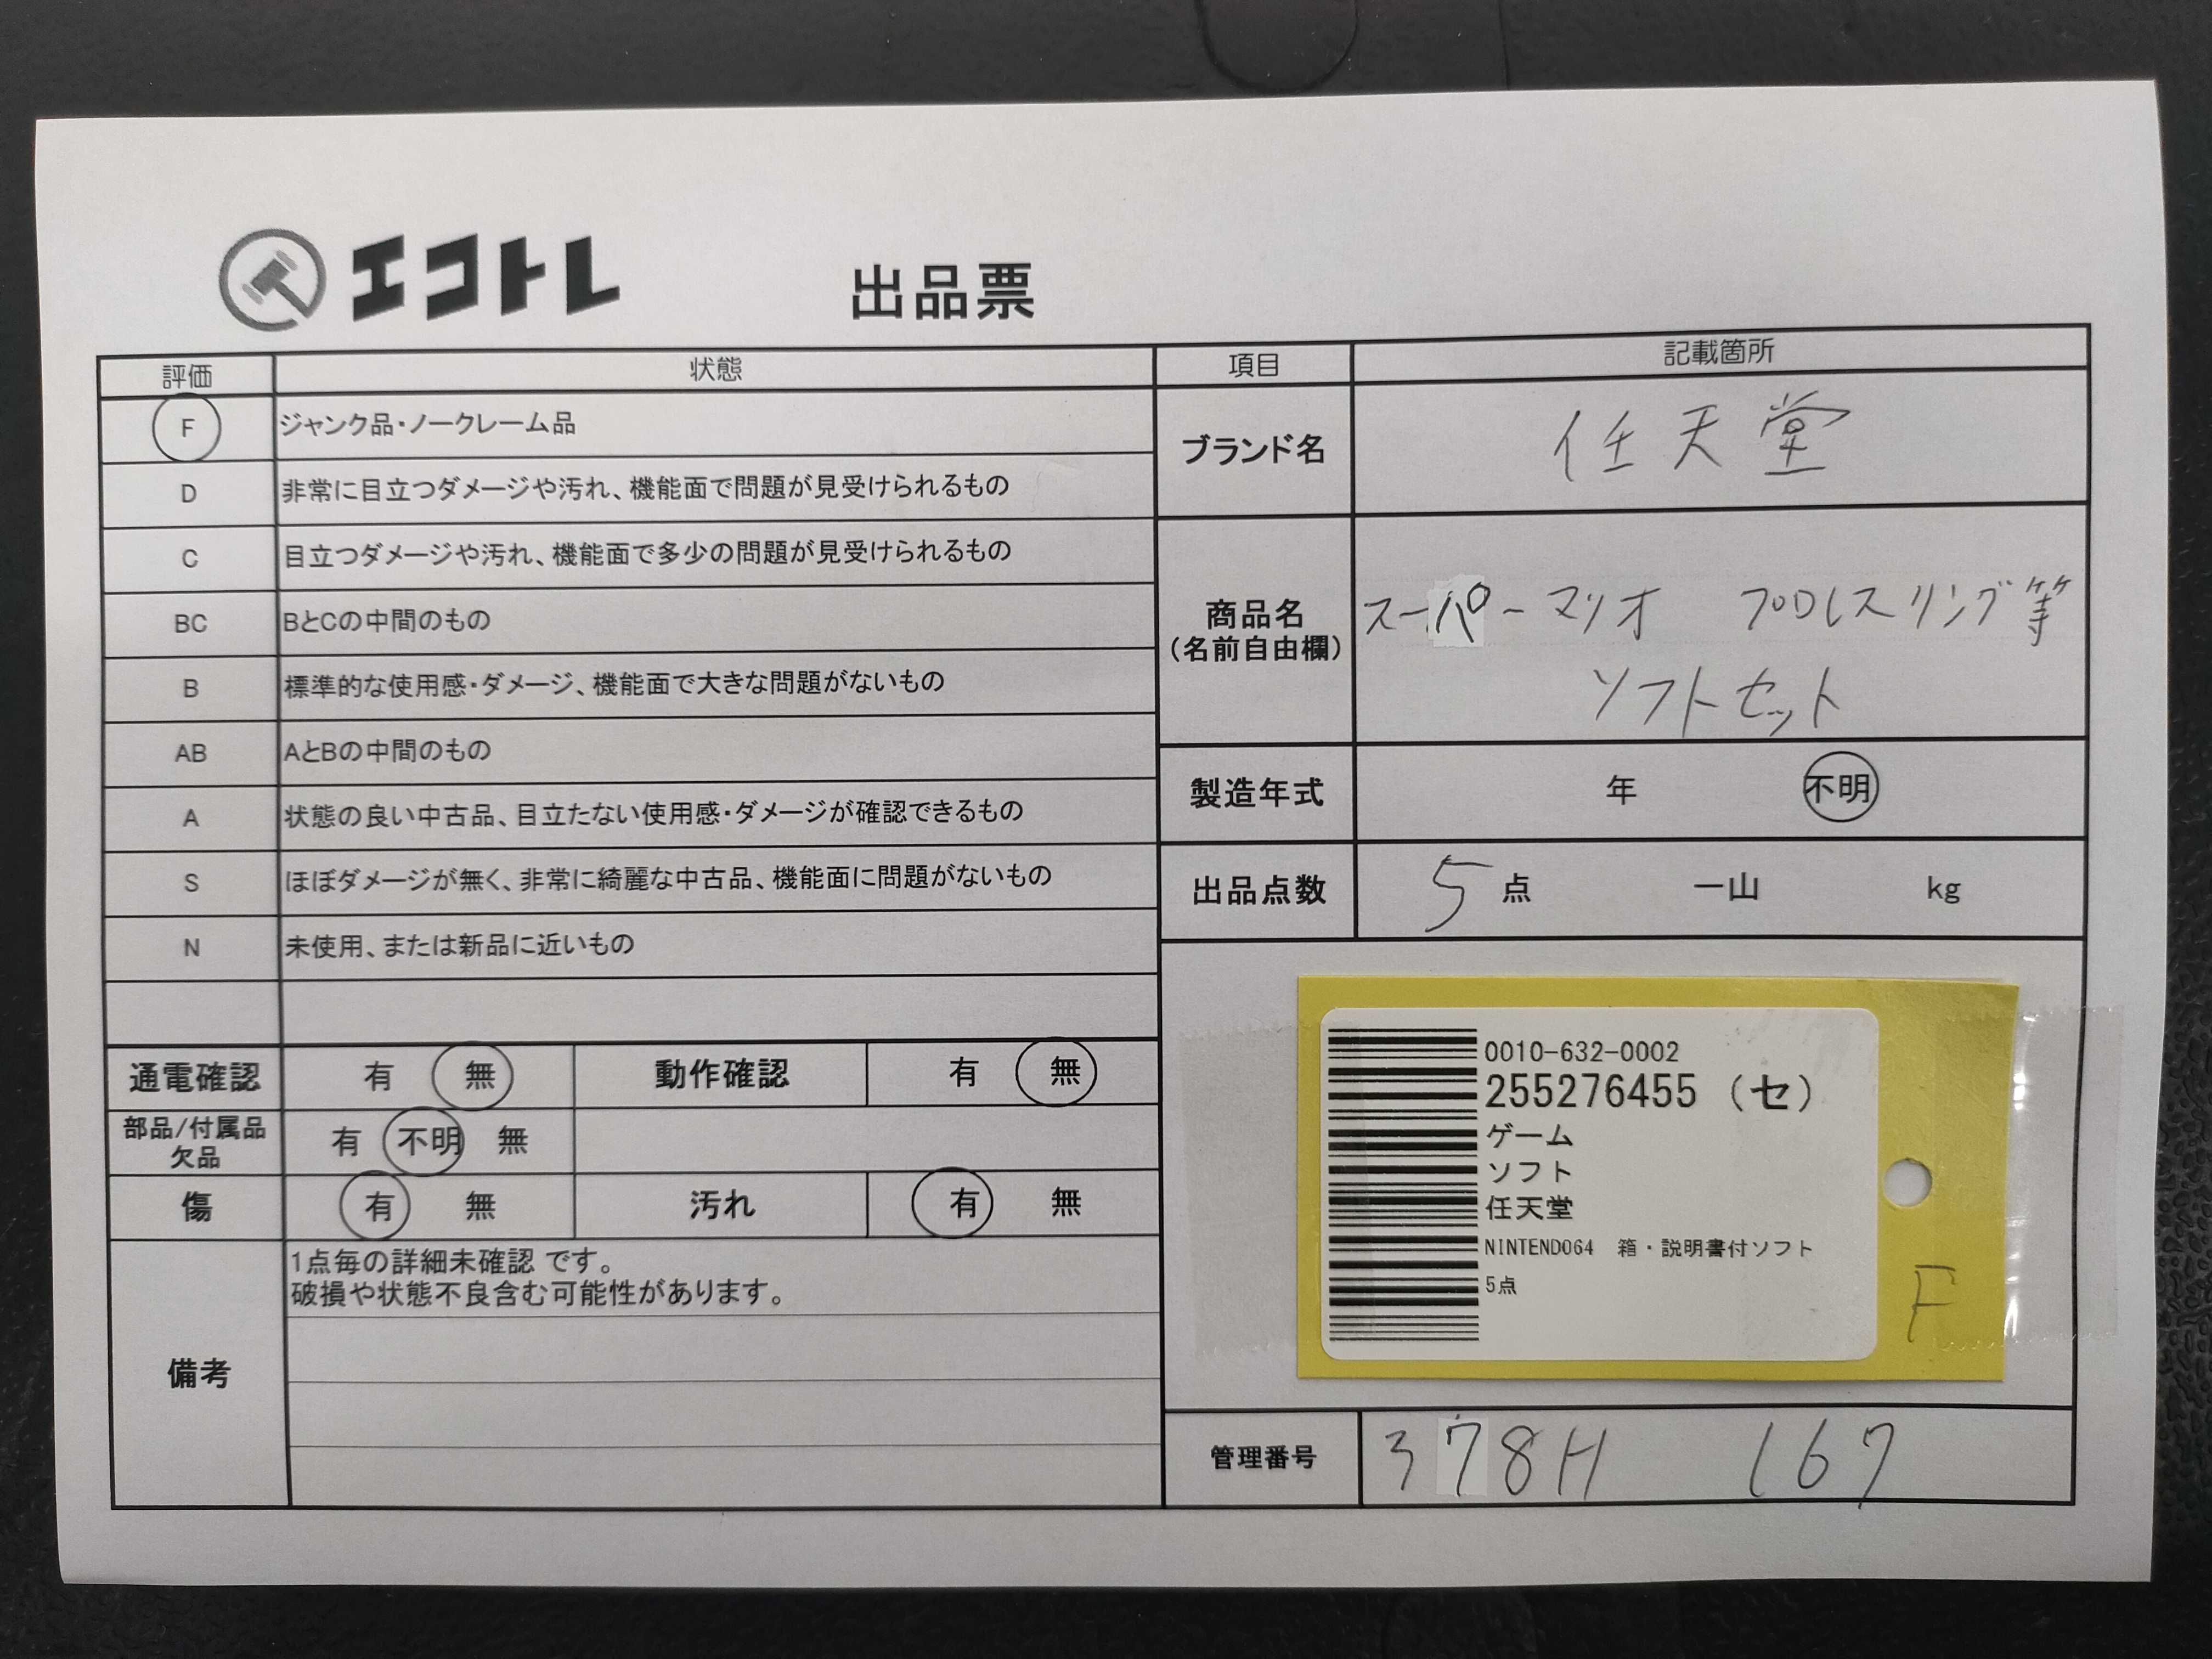 エコトレ
出品票
評価 状態
F ジャンク品・ノークレーム品
D 非常に目立つダメージや汚れ、機能面で問題が見受けられるもの
C 目立つダメージや汚れ、機能面で多少の問題が見受けられるもの
BC BとCの中間のもの
B 標準的な使用感・ダメージ、機能面で大きな問題がないもの
AB AとBの中間のもの
A 状態の良い中古品、目立たない使用感・ダメージが確認できるもの
S ほぼダメージが無く、非常に綺麗な中古品、機能面に問題がないもの
N 未使用、または新品に近いもの
通電確認 有 無 動作確認 有 無
部品/付属品
欠品 有 不明 無
傷 有 無 汚れ 有 無
備考
1点毎の詳細未確認 です。
破損や状態不良含む可能性があります。
項目 記載箇所
ブランド名 任天堂
商品名
(名前自由欄)
スーパーマリオ プロレスリング等
ソフトセット
製造年式 年 不明
出品点数 5 点 一山 kg
0010-632-0002
255276455 (セ)
ゲーム
ソフト
任天堂
NINTENDO64 箱・説明書付ソフト
5点
F
管理番号 378H 167